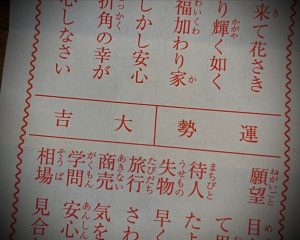 来て花さき
り輝く如く
福加わり家
しかし安心
折角の幸が
心しなさい
運勢
大吉
願望 目
て
待人 たよ
失物 早く
旅行 さわ
商売 気を
学問 安心
相場 見合